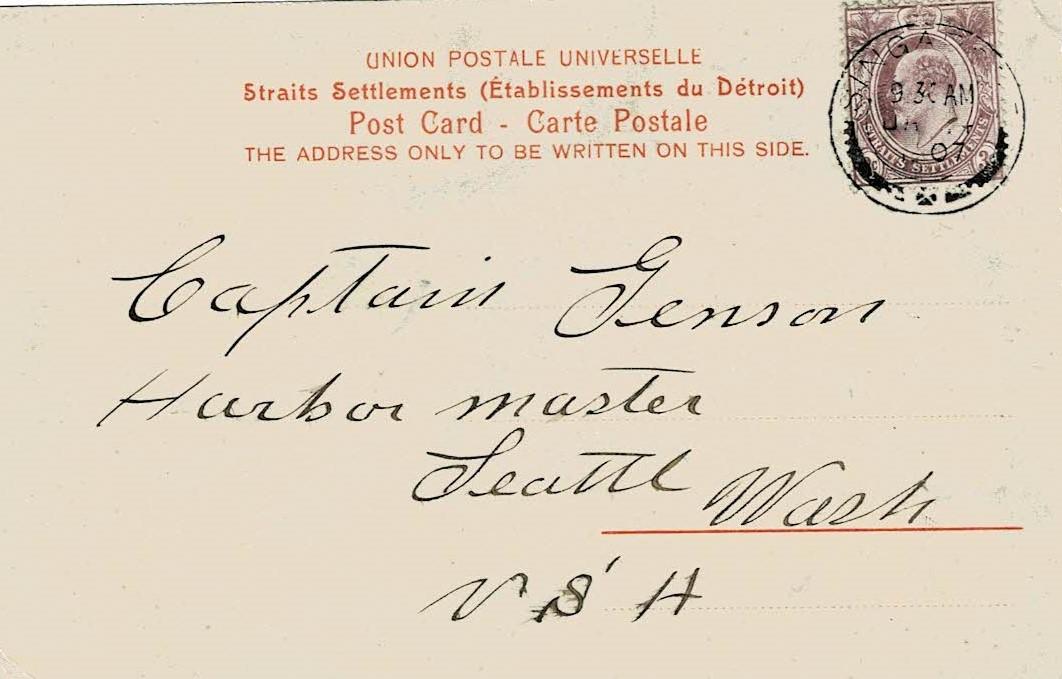 UNION POSTALE UNIVERSELLE
Straits Settlements (Établissements du Détroit)
Post Card - Carte Postale
THE ADDRESS ONLY TO BE WRITTEN ON THIS SIDE.
SINGA
9 30 AM
JA
07
STRAITS SETTLEMENTS
3 3
Captain Genson
Harbor master
Seattl Wash
U S A